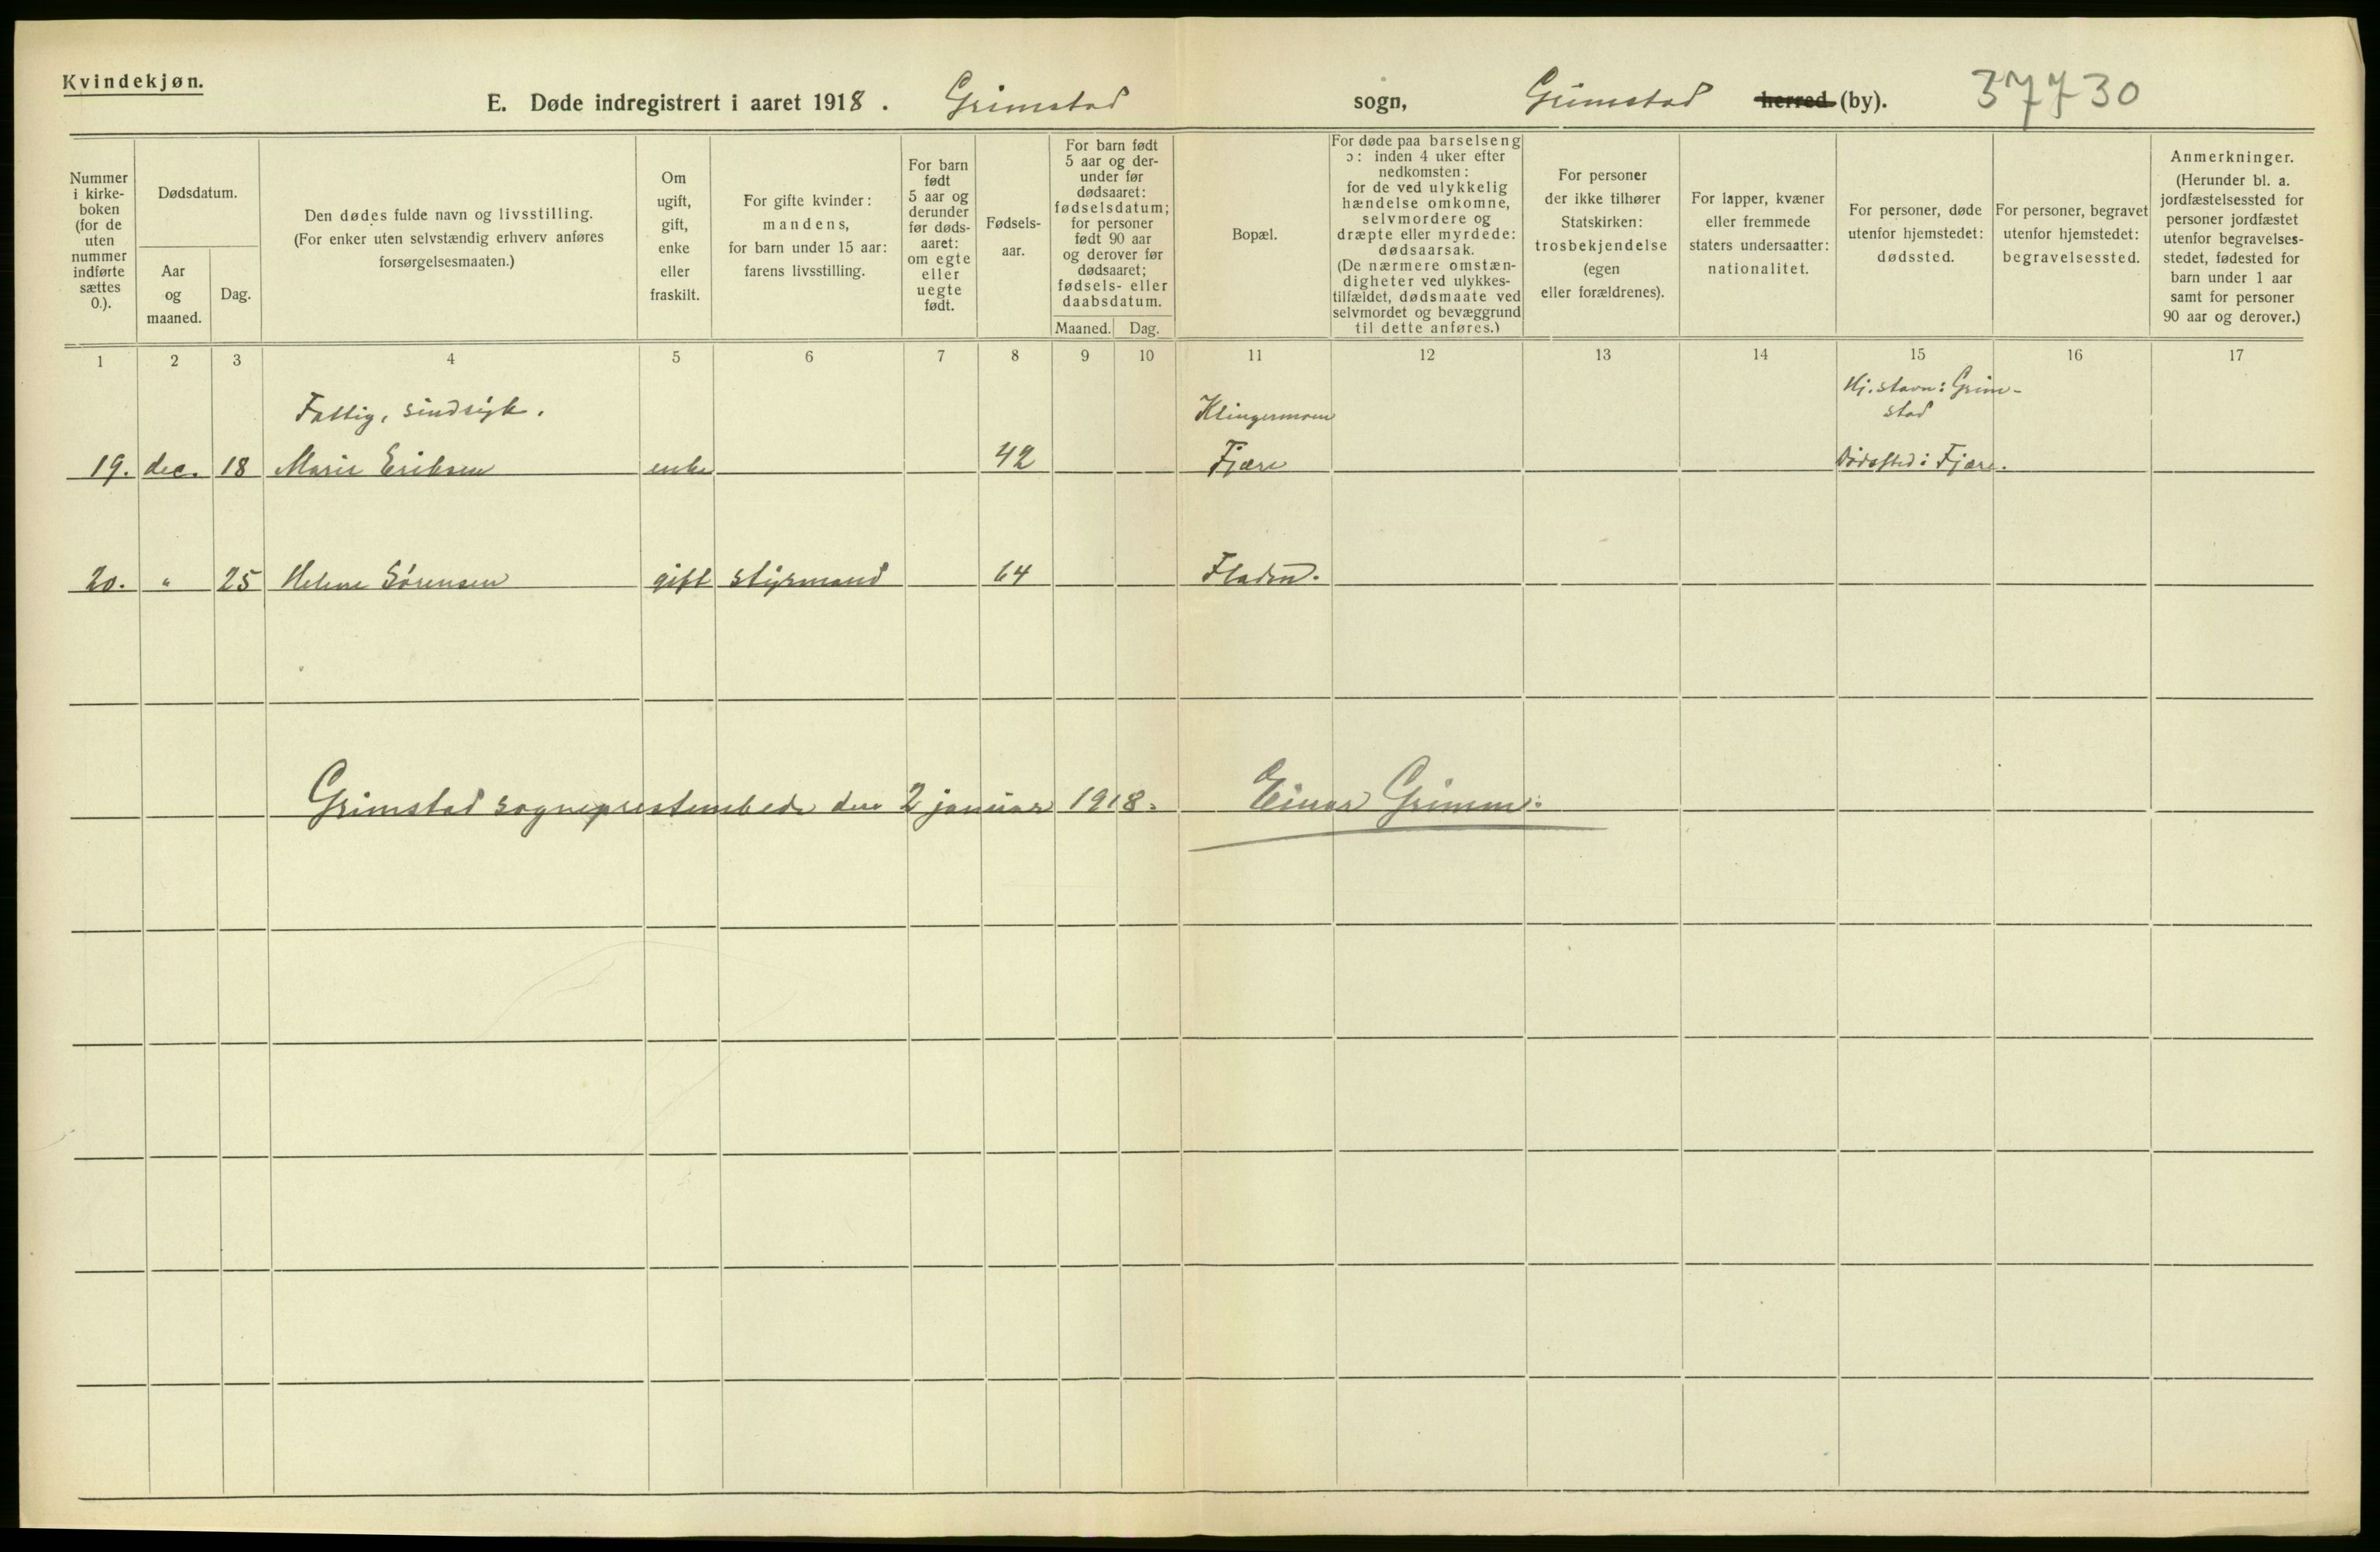 Kvindekjøn.
E. Døde indregistrert i aaret 1918. Grimstad sogn, Grimstad herred (by). 37730
Nummer i kirke-boken (for de uten nummer indførte sættes 0.).
Dødsdatum.
Aar og maaned.
Dag.
Den dødes fulde navn og livsstilling.
(For enker uten selvstændig erhverv anføres forsørgelsesmaaten.)
Om ugift, gift, enke eller fraskilt.
For gifte kvinder: mandens, for barn under 15 aar: farens livsstilling.
For barn født 5 aar og derunder før døds-aaret: om egte eller uegte født.
Fødsels-aar.
For barn født 5 aar og der-under før dødsaaret: fødselsdatum; for personer født 90 aar og derover før dødsaaret; fødsels- eller daabsdatum.
Maaned. Dag.
Bopæl.
For døde paa barselseng ɔ: inden 4 uker efter nedkomsten: for de ved ulykkelig hændelse omkomne, selvmordere og dræpte eller myrdede: dødsaarsak. (De nærmere omstæn-digheter ved ulykkes-tilfældet, dødsmaate ved selvmordet og bevæggrund til dette anføres.)
For personer der ikke tilhører Statskirken: trosbekjendelse (egen eller forældrenes).
For lapper, kvæner eller fremmede staters undersaatter: nationalitet.
For personer, døde utenfor hjemstedet: dødssted.
For personer, begravet utenfor hjemstedet: begravelsessted.
Anmerkninger. (Herunder bl. a. jordfæstelsessted for personer jordfæstet utenfor begravelses-stedet, fødested for barn under 1 aar samt for personer 90 aar og derover.)
1 2 3 4 5 6 7 8 9 10 11 12 13 14 15 16 17
Fattig, sindsigk. Klingermoen Hj.stavn: Grim-
stad
19. dec. 18 Marie Eriksen enke 42 Fjære Dødssted: Fjære.
20. " 25 Helene Sørensen gift styrmand 64 Fladen.
Grimstad sogneprestembede den 2 januar 1918. Einar Grimm.